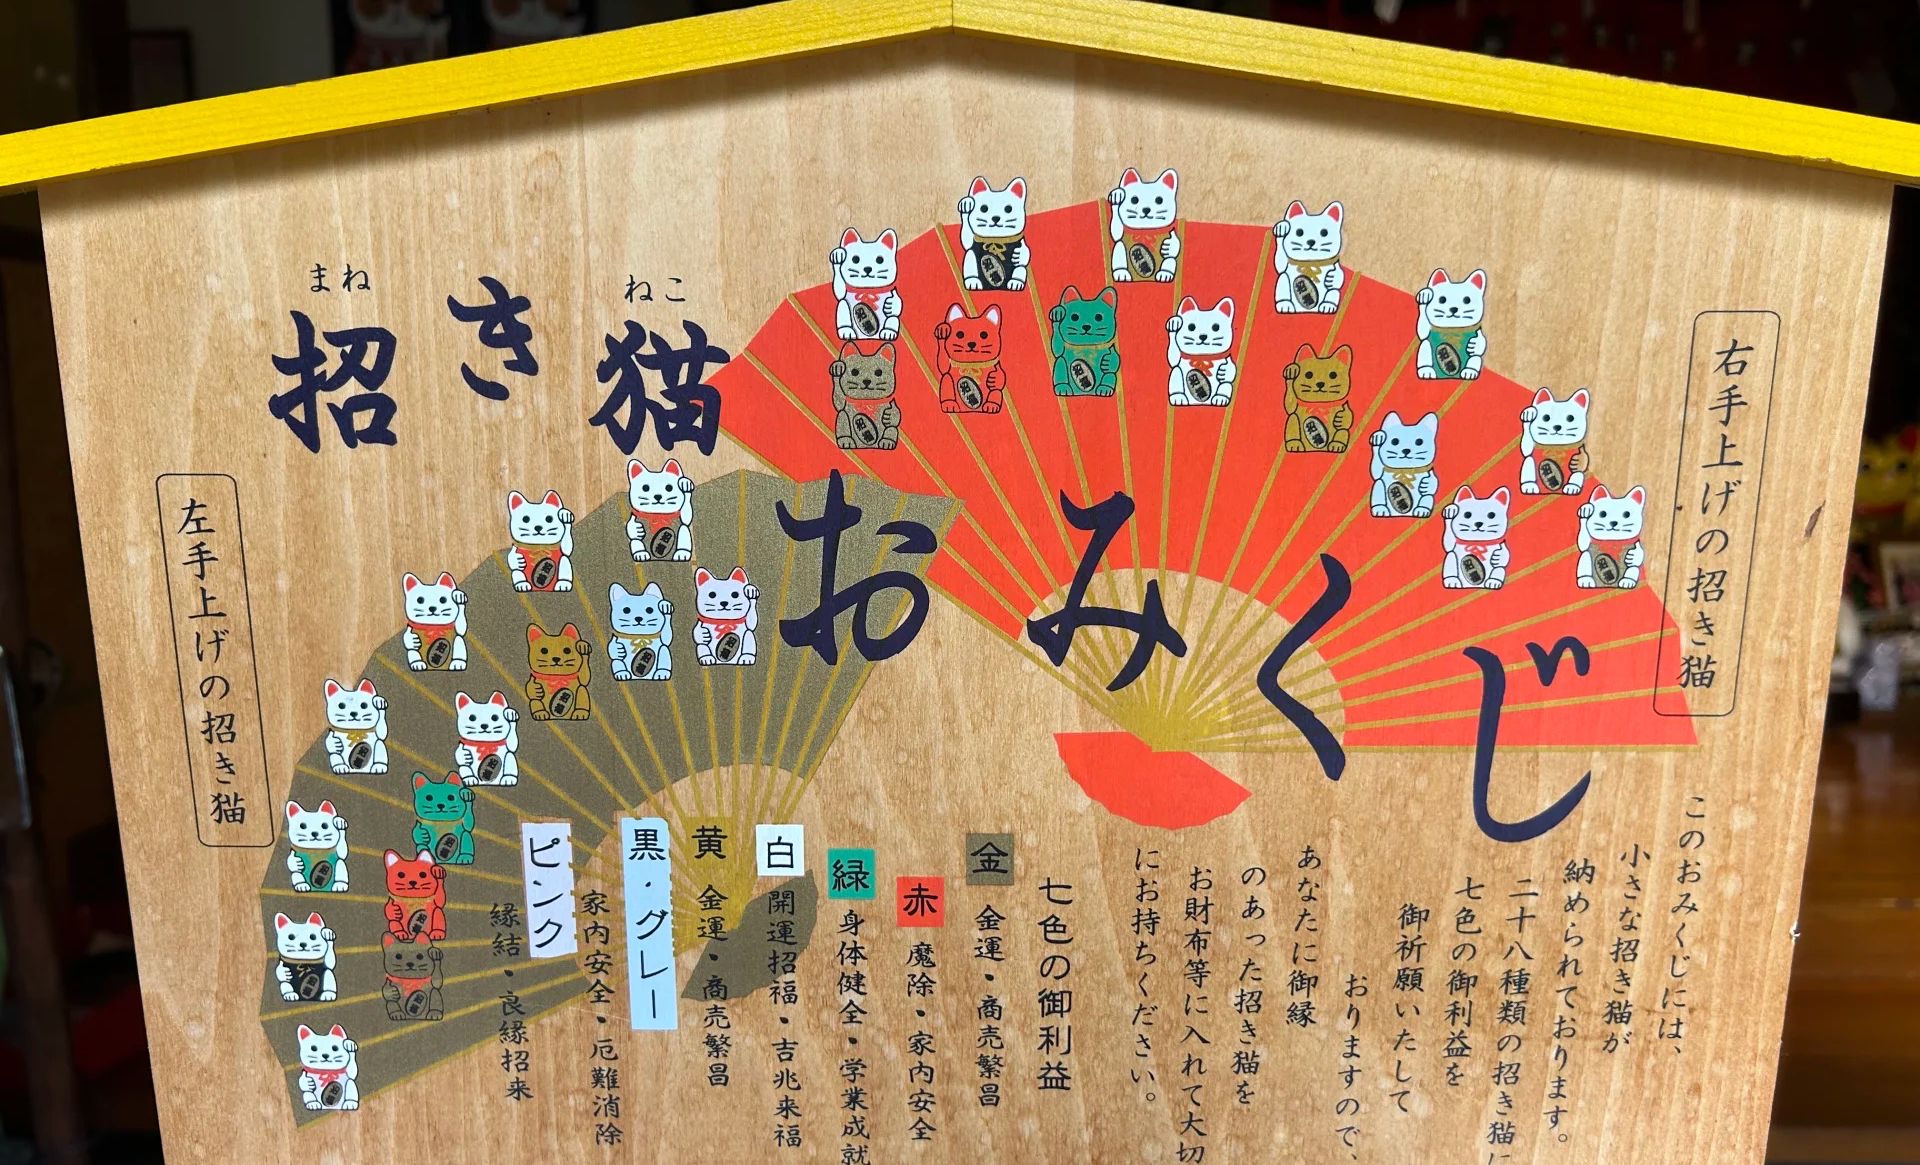 まね
ねこ
招き猫
おみくじ
右手上げの招き猫
左手上げの招き猫
このおみくじには、
小さな招き猫が
納められております。
二十八種類の招き猫に
七色の御利益を
御祈願いたして
おりますので、
あなたに御縁
のあった招き猫を
お財布等に入れて大切
にお持ちください。
七色の御利益
金 金運・商売繁昌
赤 魔除・家内安全
緑 身体健全・学業成就
白 開運招福・吉兆来福
黄 金運・商売繁昌
黒・グレー 家内安全・厄難消除
ピンク 縁結・良縁招来